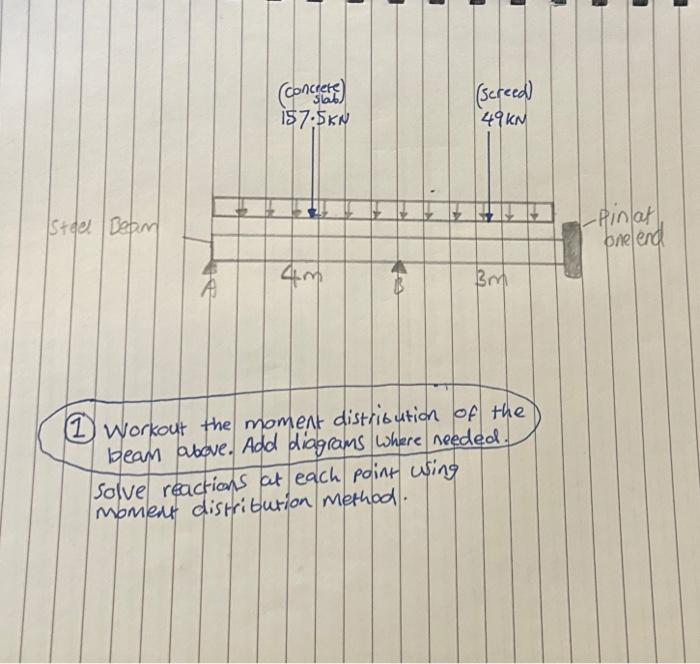 (concrete
slab)
157.5KN
(screed)
49KN
Steel Beam
Pin at
one end
A
4m
B
3m
1 Workout the moment distribution of the
beam above. Add diagrams where needed.
Solve reactions at each point using
moment distribution method.